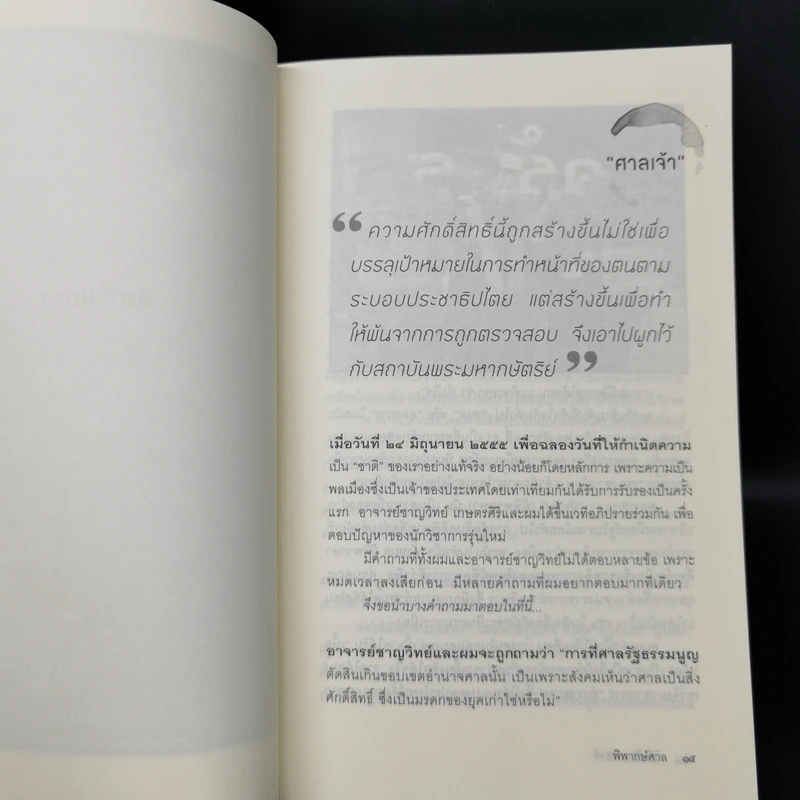 "ศาลเจ้า"
“ความศักดิ์สิทธิ์นี้ถูกสร้างขึ้นไม่ใช่เพื่อ
บรรลุเป้าหมายในการทำหน้าที่ของตนตาม
ระบอบประชาธิปไตย แต่สร้างขึ้นเพื่อทำ
ให้พ้นจากการถูกตรวจสอบ จึงเอาไปผูกไว้
กับสถาบันพระมหากษัตริย์”
เมื่อวันที่ ๒๔ มิถุนายน ๒๕๕๕ เพื่อฉลองวันที่ให้กำเนิดความ
เป็น "ชาติ" ของเราอย่างแท้จริง อย่างน้อยก็โดยหลักการ เพราะความเป็น
พลเมืองซึ่งเป็นเจ้าของประเทศโดยเท่าเทียมกันได้รับการรับรองเป็นครั้ง
แรก อาจารย์ชาญวิทย์ เกษตรศิริและผมได้ขึ้นเวทีอภิปรายร่วมกัน เพื่อ
ตอบปัญหาของนักวิชาการรุ่นใหม่
มีคำถามที่ทั้งผมและอาจารย์ชาญวิทย์ไม่ได้ตอบหลายข้อ เพราะ
หมดเวลาลงเสียก่อน มีหลายคำถามที่ผมอยากตอบมากทีเดียว
จึงขอนำบางคำถามมาตอบในที่นี้...
อาจารย์ชาญวิทย์และผมจะถูกถามว่า "การที่ศาลรัฐธรรมนูญ
ตัดสินเกินขอบเขตอำนาจศาลนั้น เป็นเพราะสังคมเห็นว่าศาลเป็นสิ่ง
ศักดิ์สิทธิ์ ซึ่งเป็นมรดกของยุคเก่าใช่หรือไม่"
พิพากษ์ศาล ๑๕